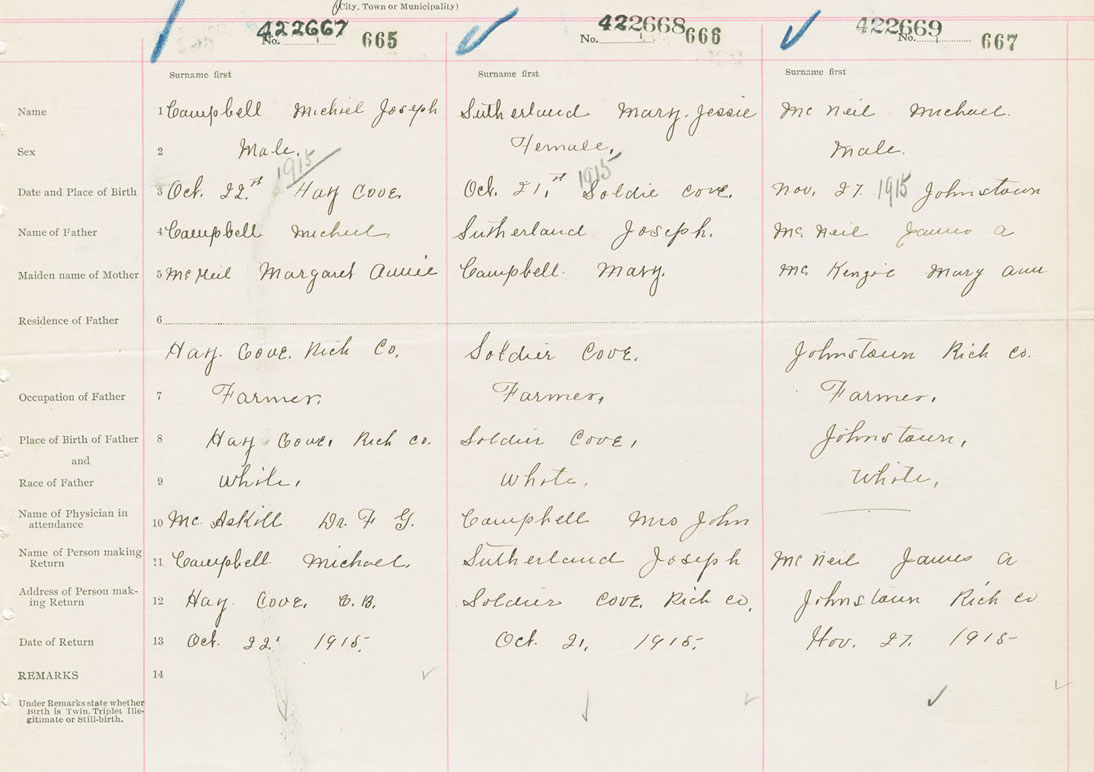 (City, Town or Municipality)
422667 No. 665 422668 No. 666 422669 No. 667
Surname first Surname first Surname first
Name 1 Campbell Michiel Joseph Sutherland Mary Jessie Mc Neil Michael.
Sex 2 Male. Female, Male.
1915 1915
Date and Place of Birth 3 Oct. 22.st Hay Cove. Oct. 21,st Soldie Cove. Nov. 27. 1915 Johnstown
Name of Father 4 Campbell Michiel, Sutherland Joseph. Mc Neil James A
Maiden name of Mother 5 Mc Neil Margaret Annie Campbell. Mary. Mc Kenzie Mary Ann
Residence of Father 6
Hay. Cove. Rich Co. Soldier Cove. Johnstown Rich Co.
Occupation of Father 7 Farmer. Farmer, Farmer,
Place of Birth of Father 8 Hay Cove, Rich Co. Soldier Cove, Johnstown,
and
Race of Father 9 White, White, White,
Name of Physician in attendance 10 Mc Askill Dr. F G. Campbell Mrs John
Name of Person making Return 11 Campbell Michael. Sutherland Joseph Mc Neil James A
Address of Person making Return 12 Hay. Cove, C.B. Soldier Cove. Rich Co, Johnstown Rich Co
Date of Return 13 Oct. 22 1915. Oct. 21, 1915. Nov. 27. 1915
REMARKS 14
Under Remarks state whether
Birth is Twin. Triplet Ille-
gitimate or Still-birth.